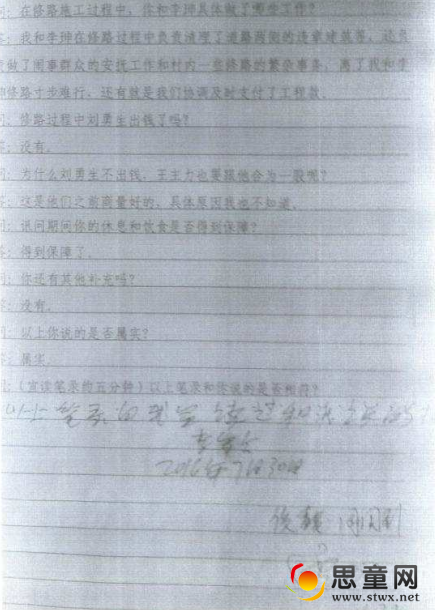 问:在修路施工过程中,你和李珅具体做了哪些工作?
答:我和李珅在修路过程中负责清理了道路两侧的违章建筑等,还负
责做了闹事群众的安抚工作和村内一些修路的繁杂事务,离了我和李
珅修路寸步难行,还有就是我们协调及时支付了工程款。
问:修路过程中刘勇生出钱了吗?
答:没有。
问:为什么刘勇生不出钱,王主力也要跟他合为一股呢?
答:这是他们之前商量好的,具体原因我也不知道。
问:讯问期间你的休息和饮食是否得到保障?
答:得到保障了。
问:你还有其他补充吗?
答:没有。
问:以上你说的是否属实?
答:属实。
问:(宣读笔录约五分钟)以上笔录和你说的是否相符?
以上笔录
思童网
www.stwx.net